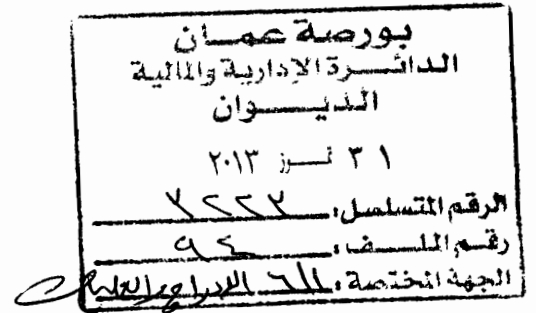 بورصة عمان
الدائرة الإدارية والمالية
الديوان
٣١ تموز ٢٠١٣
الرقم المتسلسل:
رقم الملف: ٩٤
الجهة المختصة: